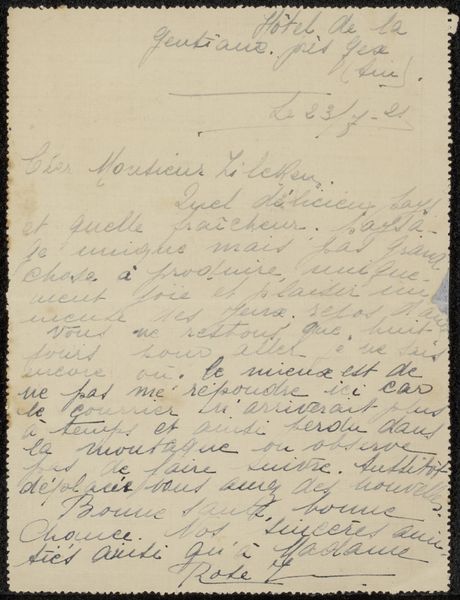 Hôtel de la
Gentiane. près Gex
(Ain).
Le 23/7-21
Cher Monsieur Zilcken,
Quel délicieux pays
et quelle fraîcheur. Paysa-
ge unique mais pas grand
chose à produire, unique-
ment joie et plaisir im-
mense des yeux. repos
Nous ne restons que huit
jours pour aller je ne sais
encore où. le mieux est de
ne pas me répondre ici car
le courrier n'arriverait plus
à temps et ainsi perdu dans
la montagne on observe
pas de faire suivre. Aussitôt
déplacée vous aurez des nouvelles.
Bonne santé, bonne
chance. Nos sincères ami-
tiés ainsi qu'à Madame
Rose